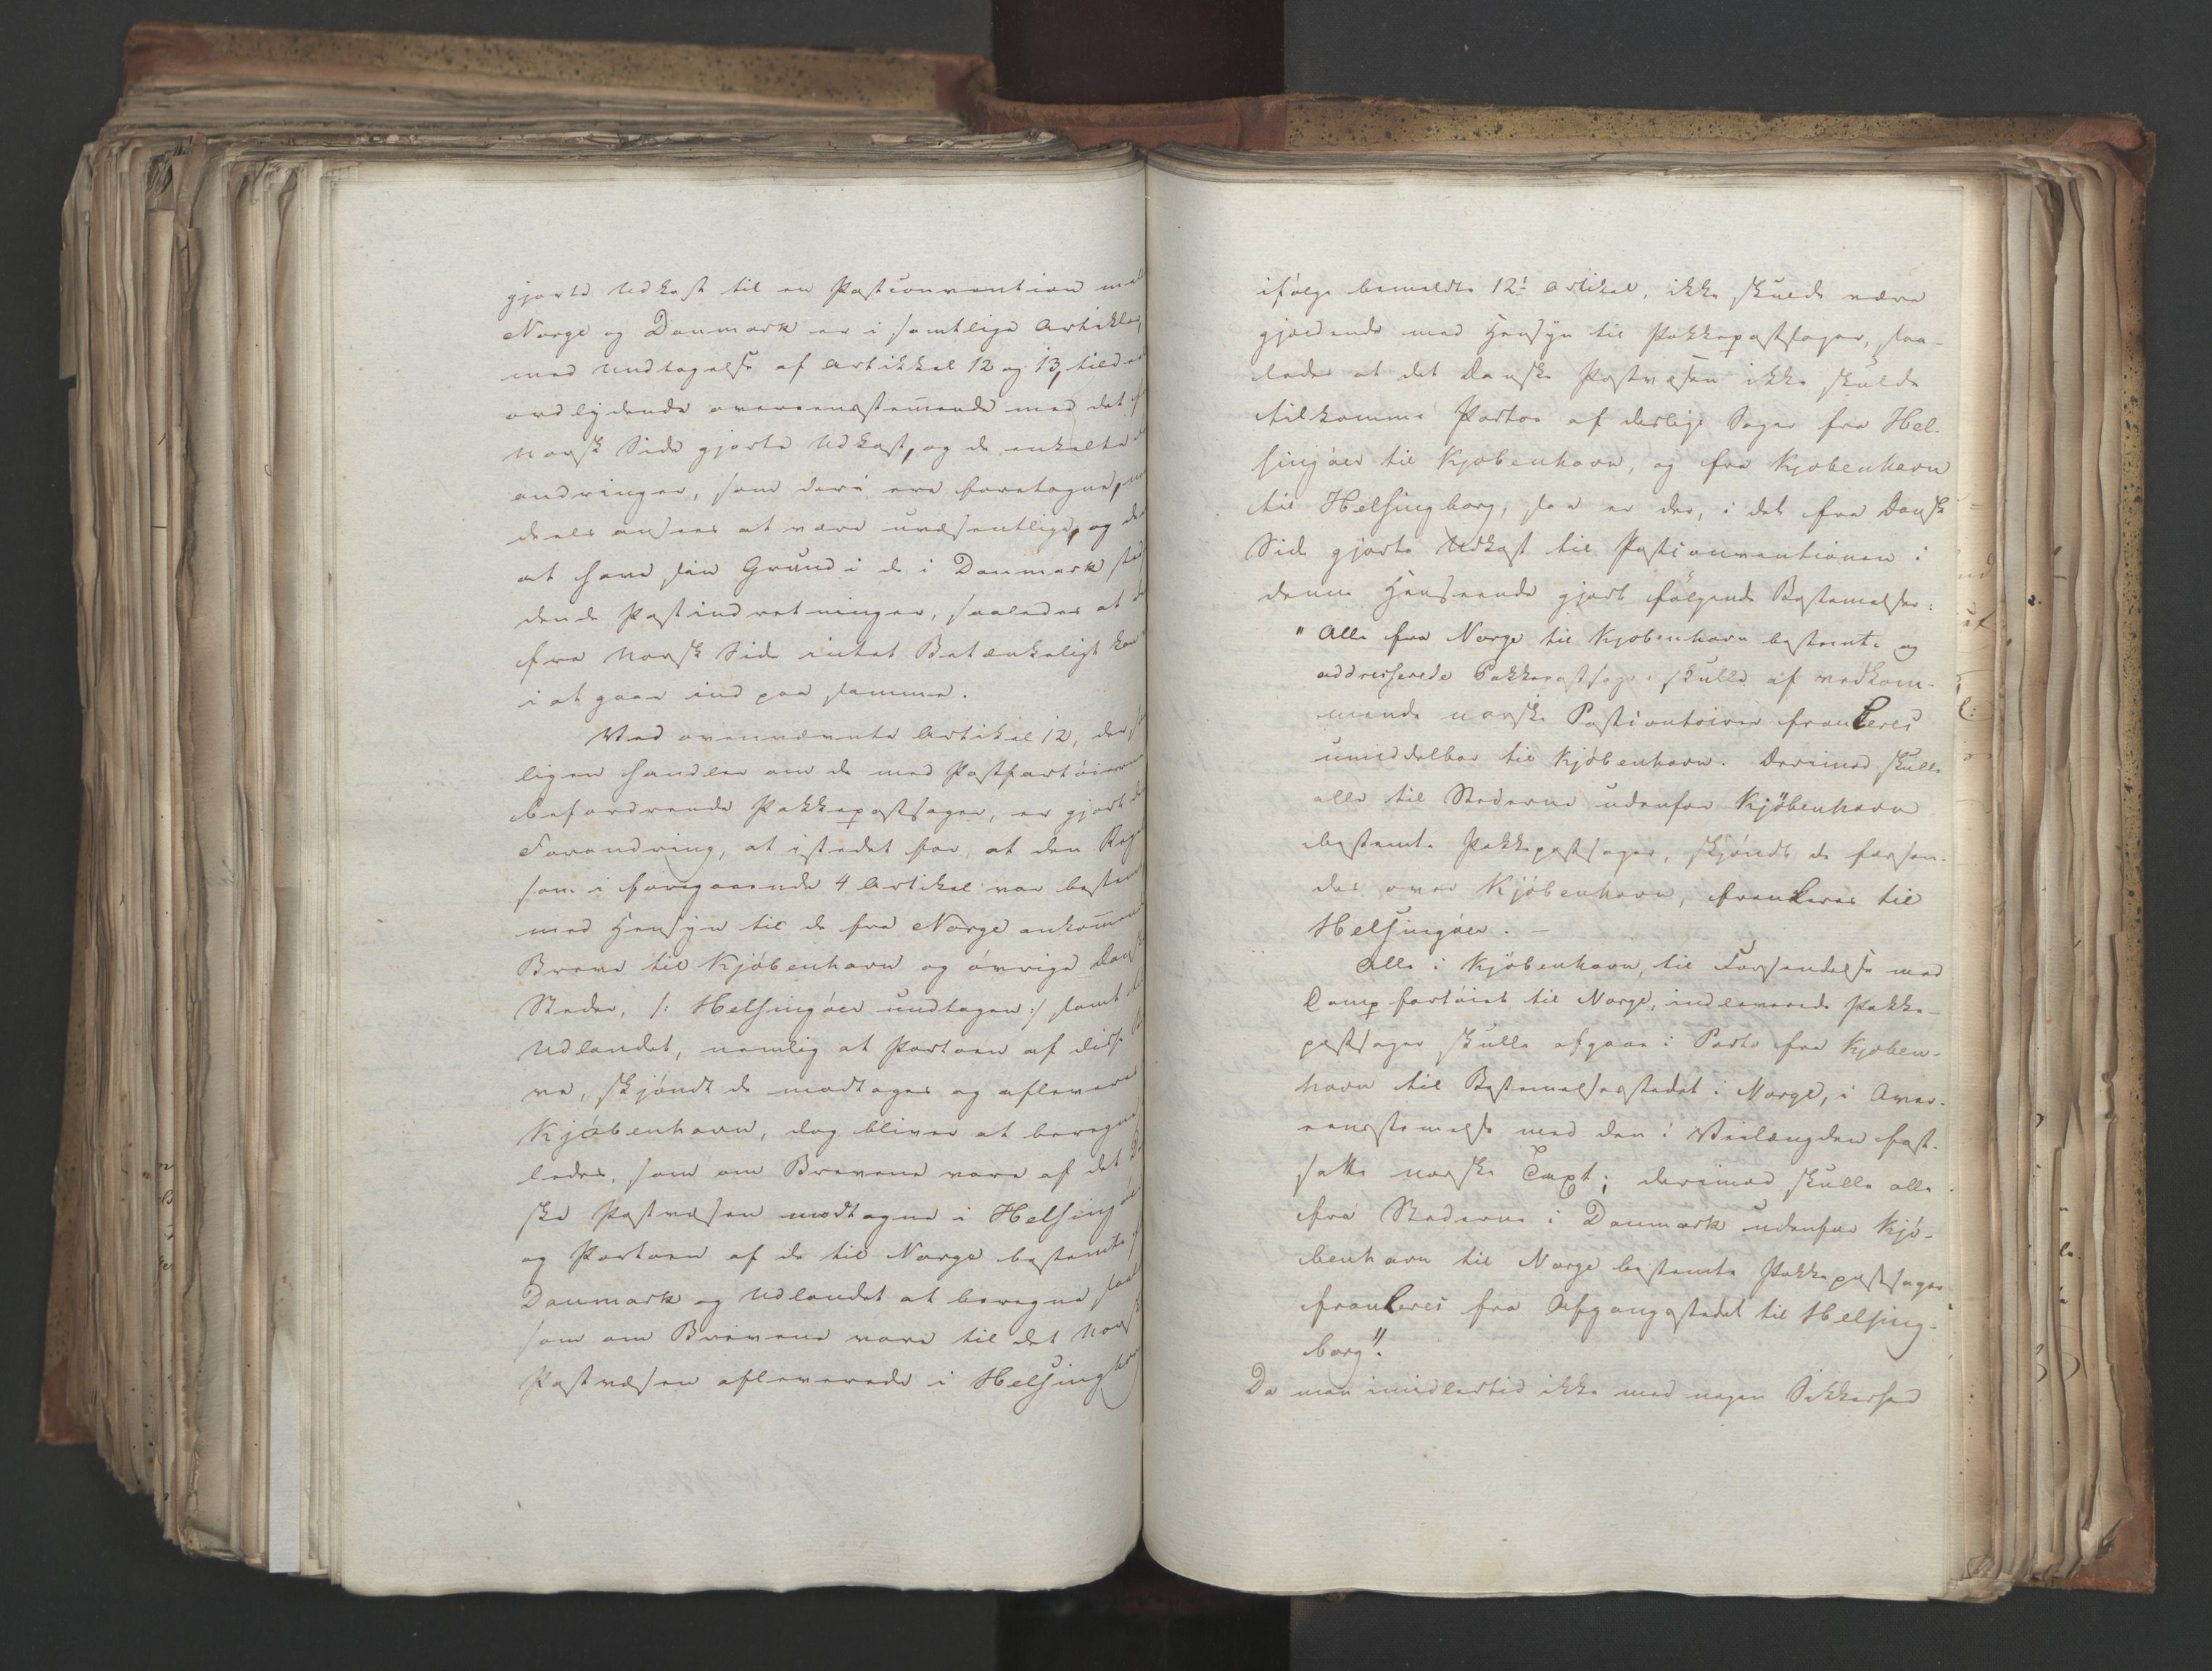 gjorte Udkast til en Postconvention mell
Norge og Danmark er i samtlige Artikler,
med Undtagelse af Artikkel 12 og 13, tildeels
ordlydende overeensstemmende med det fra
norsk Side gjorte Udkast, og de enkelte For
andringer, som deri ere foretagne,
deels ansees at være uvæsentlige, og deels
at have sin Grund i de i Danmark sted
dende Postindretninger, saaledes at der
fra norsk Side intet Betænkeligt kan
i at gaae ind paa samme.
Ved ovennævnte Artikel 12, der
ligen handler om de med Postfartøierne
befordrende Pakkepostsager, er gjort den
Forandring, at istedet for, at den Regel
som i foregaaende 4 Artikel var bestemt
med Hensyn til de fra Norge ankommende
Breve til Kjöbenhavn og øvrige Danske
Steder, /: Helsingöer undtagen :/ samt
Udlandet, nemlig at Portoen af disse Bre
ve, skjöndt de modtages og afleveres
Kjøbenhavn, dog bliver at beregne
ledes, som om Brevene vare af det Dan
ske Postvæsen modtagne i Helsingöer
og Portoen af de til Norge bestemte
Danmark og Udlandet at beregne saal
som om Brevene vare til det norske
Postvæsen afleverede i Helsingborg
ifölge bemeldte 12t Artikel, ikke skulde være
gjældende med Hensyn til Pakkepostsager, saa-
ledes at det Danske Postvæsen ikke skulde
tilkomme Portoe af deslige Sager fra Hel-
singöer til Kjøbenhavn, og fra Kjøbenhavn
til Helsingborg, saa er der, i det fra Dansk
Side gjorte Udkast til Postconventionen i
denne Henseende gjort følgende Bestemmelser:
" Alle fra Norge til Kjøbenhavn bestemte og
addresserede Pakkepostsager skulle af vedkom-
mende norske Postcontoirer frankeres
umiddelbar til Kjöbenhavn. Derimod skulle
alle til Stederne udenfor Kjöbenhavn
bestemte Pakkepostsager, skjöndt de forsen-
des over Kjöbenhavn, frankeres til
Helsingöer. –
Alle i Kjøbenhavn, til Forsendelse med
Dampfartöiet til Norge, indleverede Pakke-
postsager skulle afgaae i Porto fra Kjøben-
havn til Bestemmelsesstedet i Norge, i Over-
eensstemmelse med den i Veilængden fast-
satte norske Taxt; derimod skulle alle
fra Stederne i Danmark udenfor Kjö-
benhavn til Norge bestemte Pakkepostsager
frankeres fra Afgangsstedet til Helsing-
borg".
Da man imidlertid ikke med nogen Sikkerhed